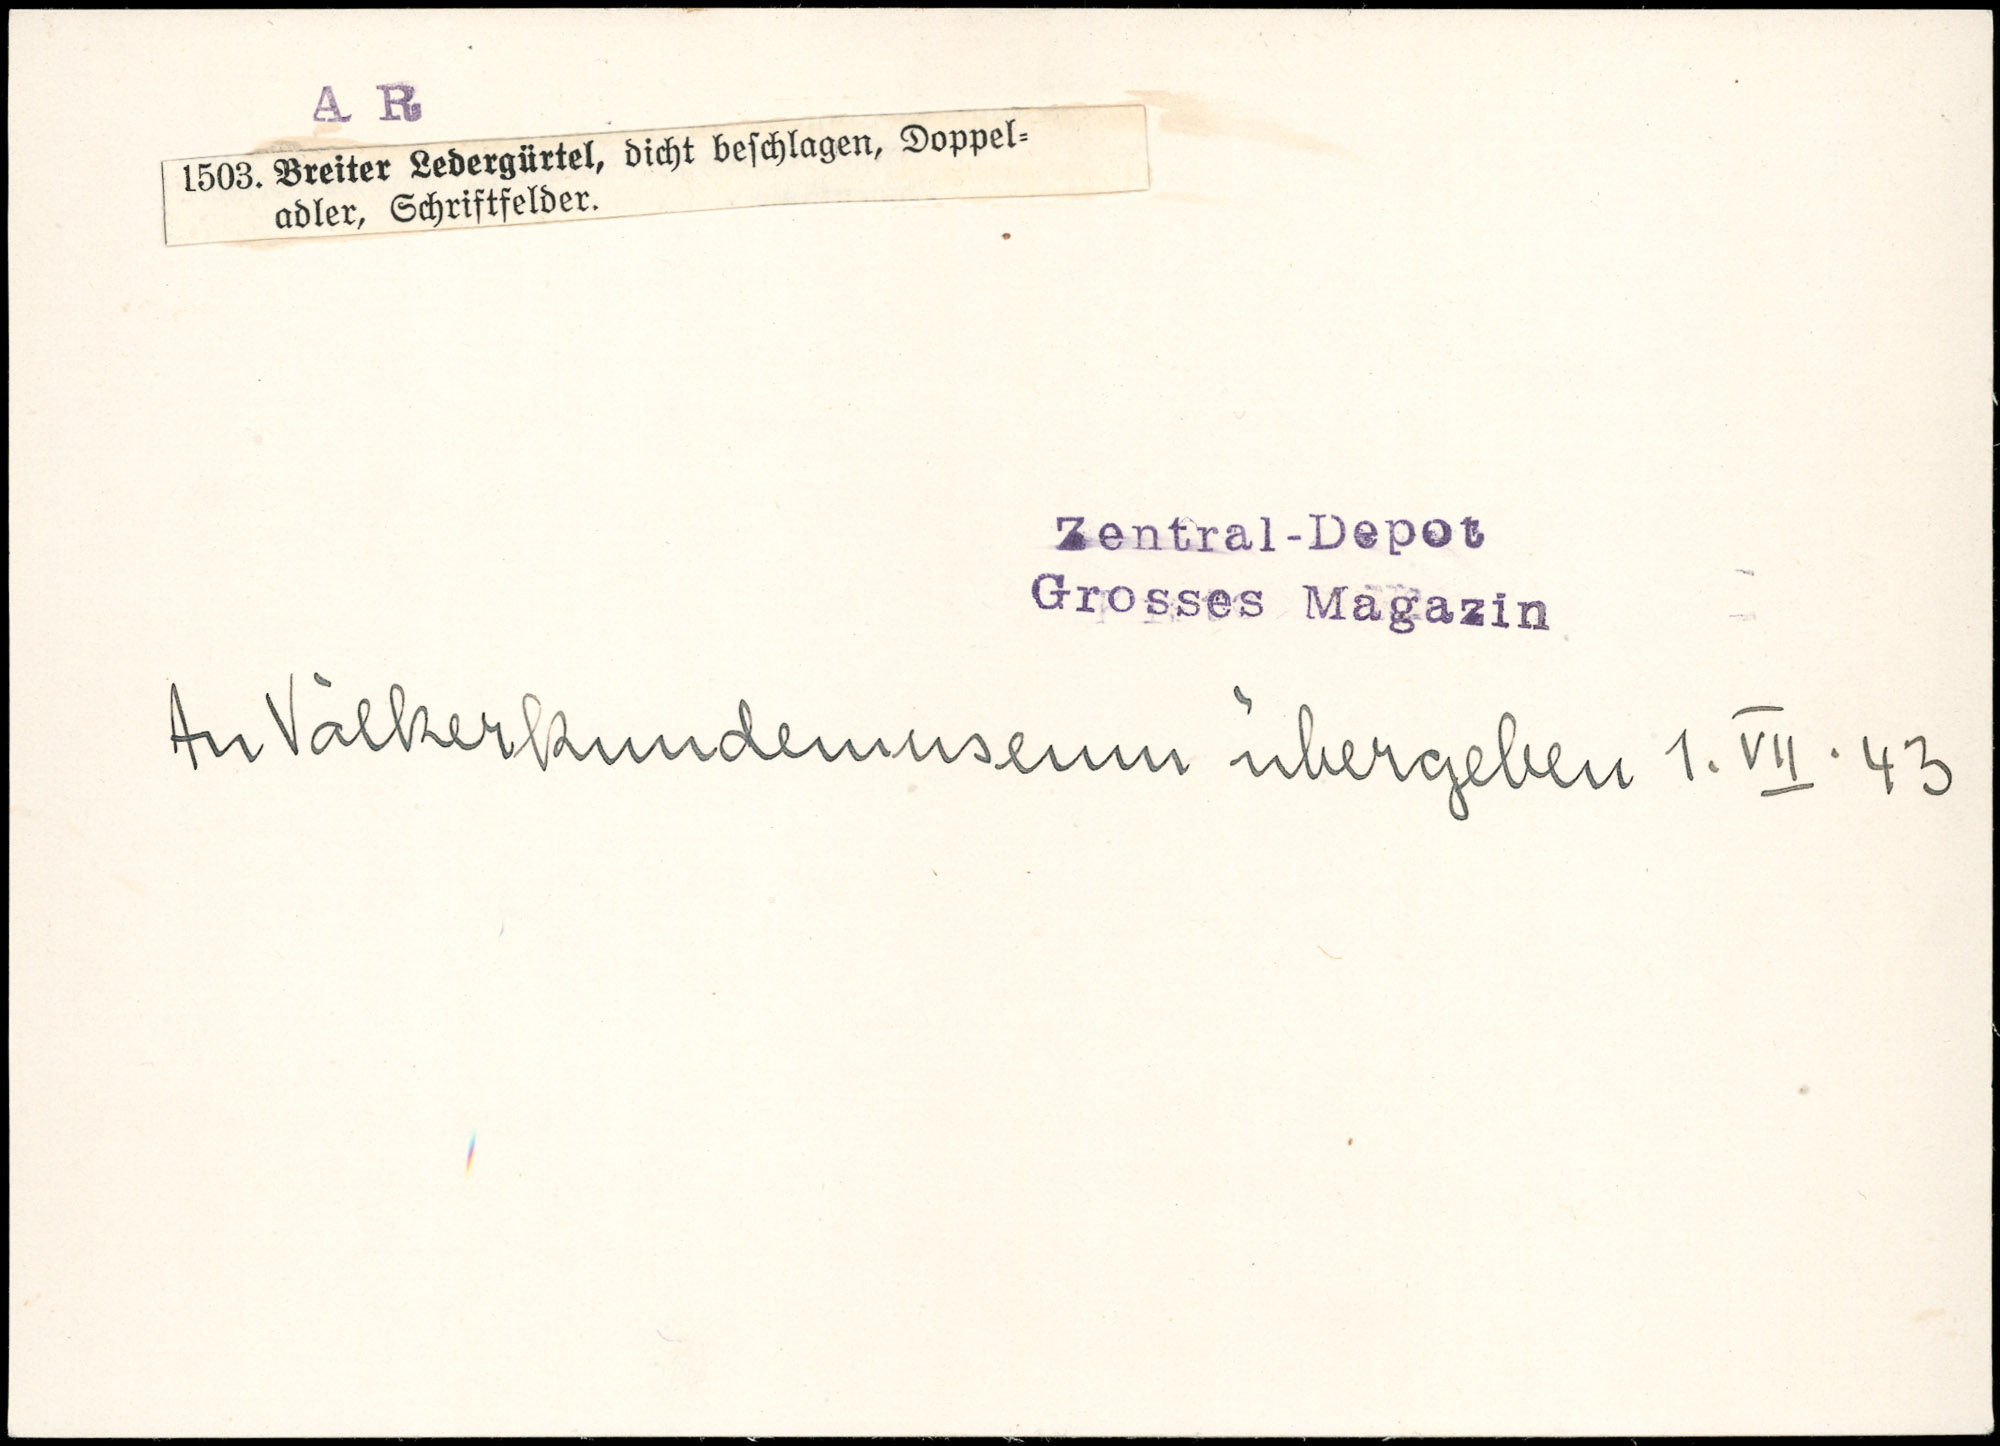 A R
1503. Breiter Ledergürtel, dicht beschlagen, Doppel-
adler, Schriftfelder.
Zentral-Depot
Grosses Magazin
An Völkerkundemuseum übergeben 1. VII. 43